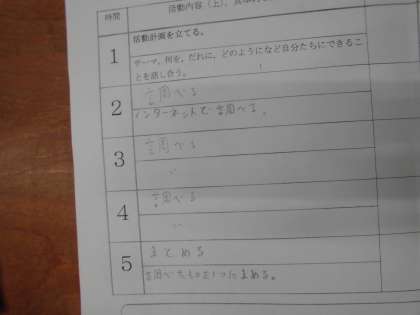 時間
活動内容（上）
1
活動計画を立てる。
テーマ、何を、だれに、どのようになど自分たちにできるこ
とを話し合う。
2
調べる
インターネットで調べる。
3
調べる
〃
4
調べる
〃
5
まとめる
調べたものを1つにまめる。